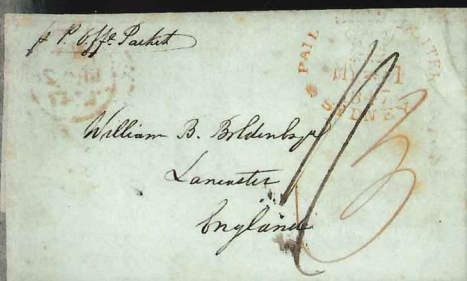 p P. Offe Packet
PAID
SYDNEY
William B. Bolden Esqr
Lancaster
England
3